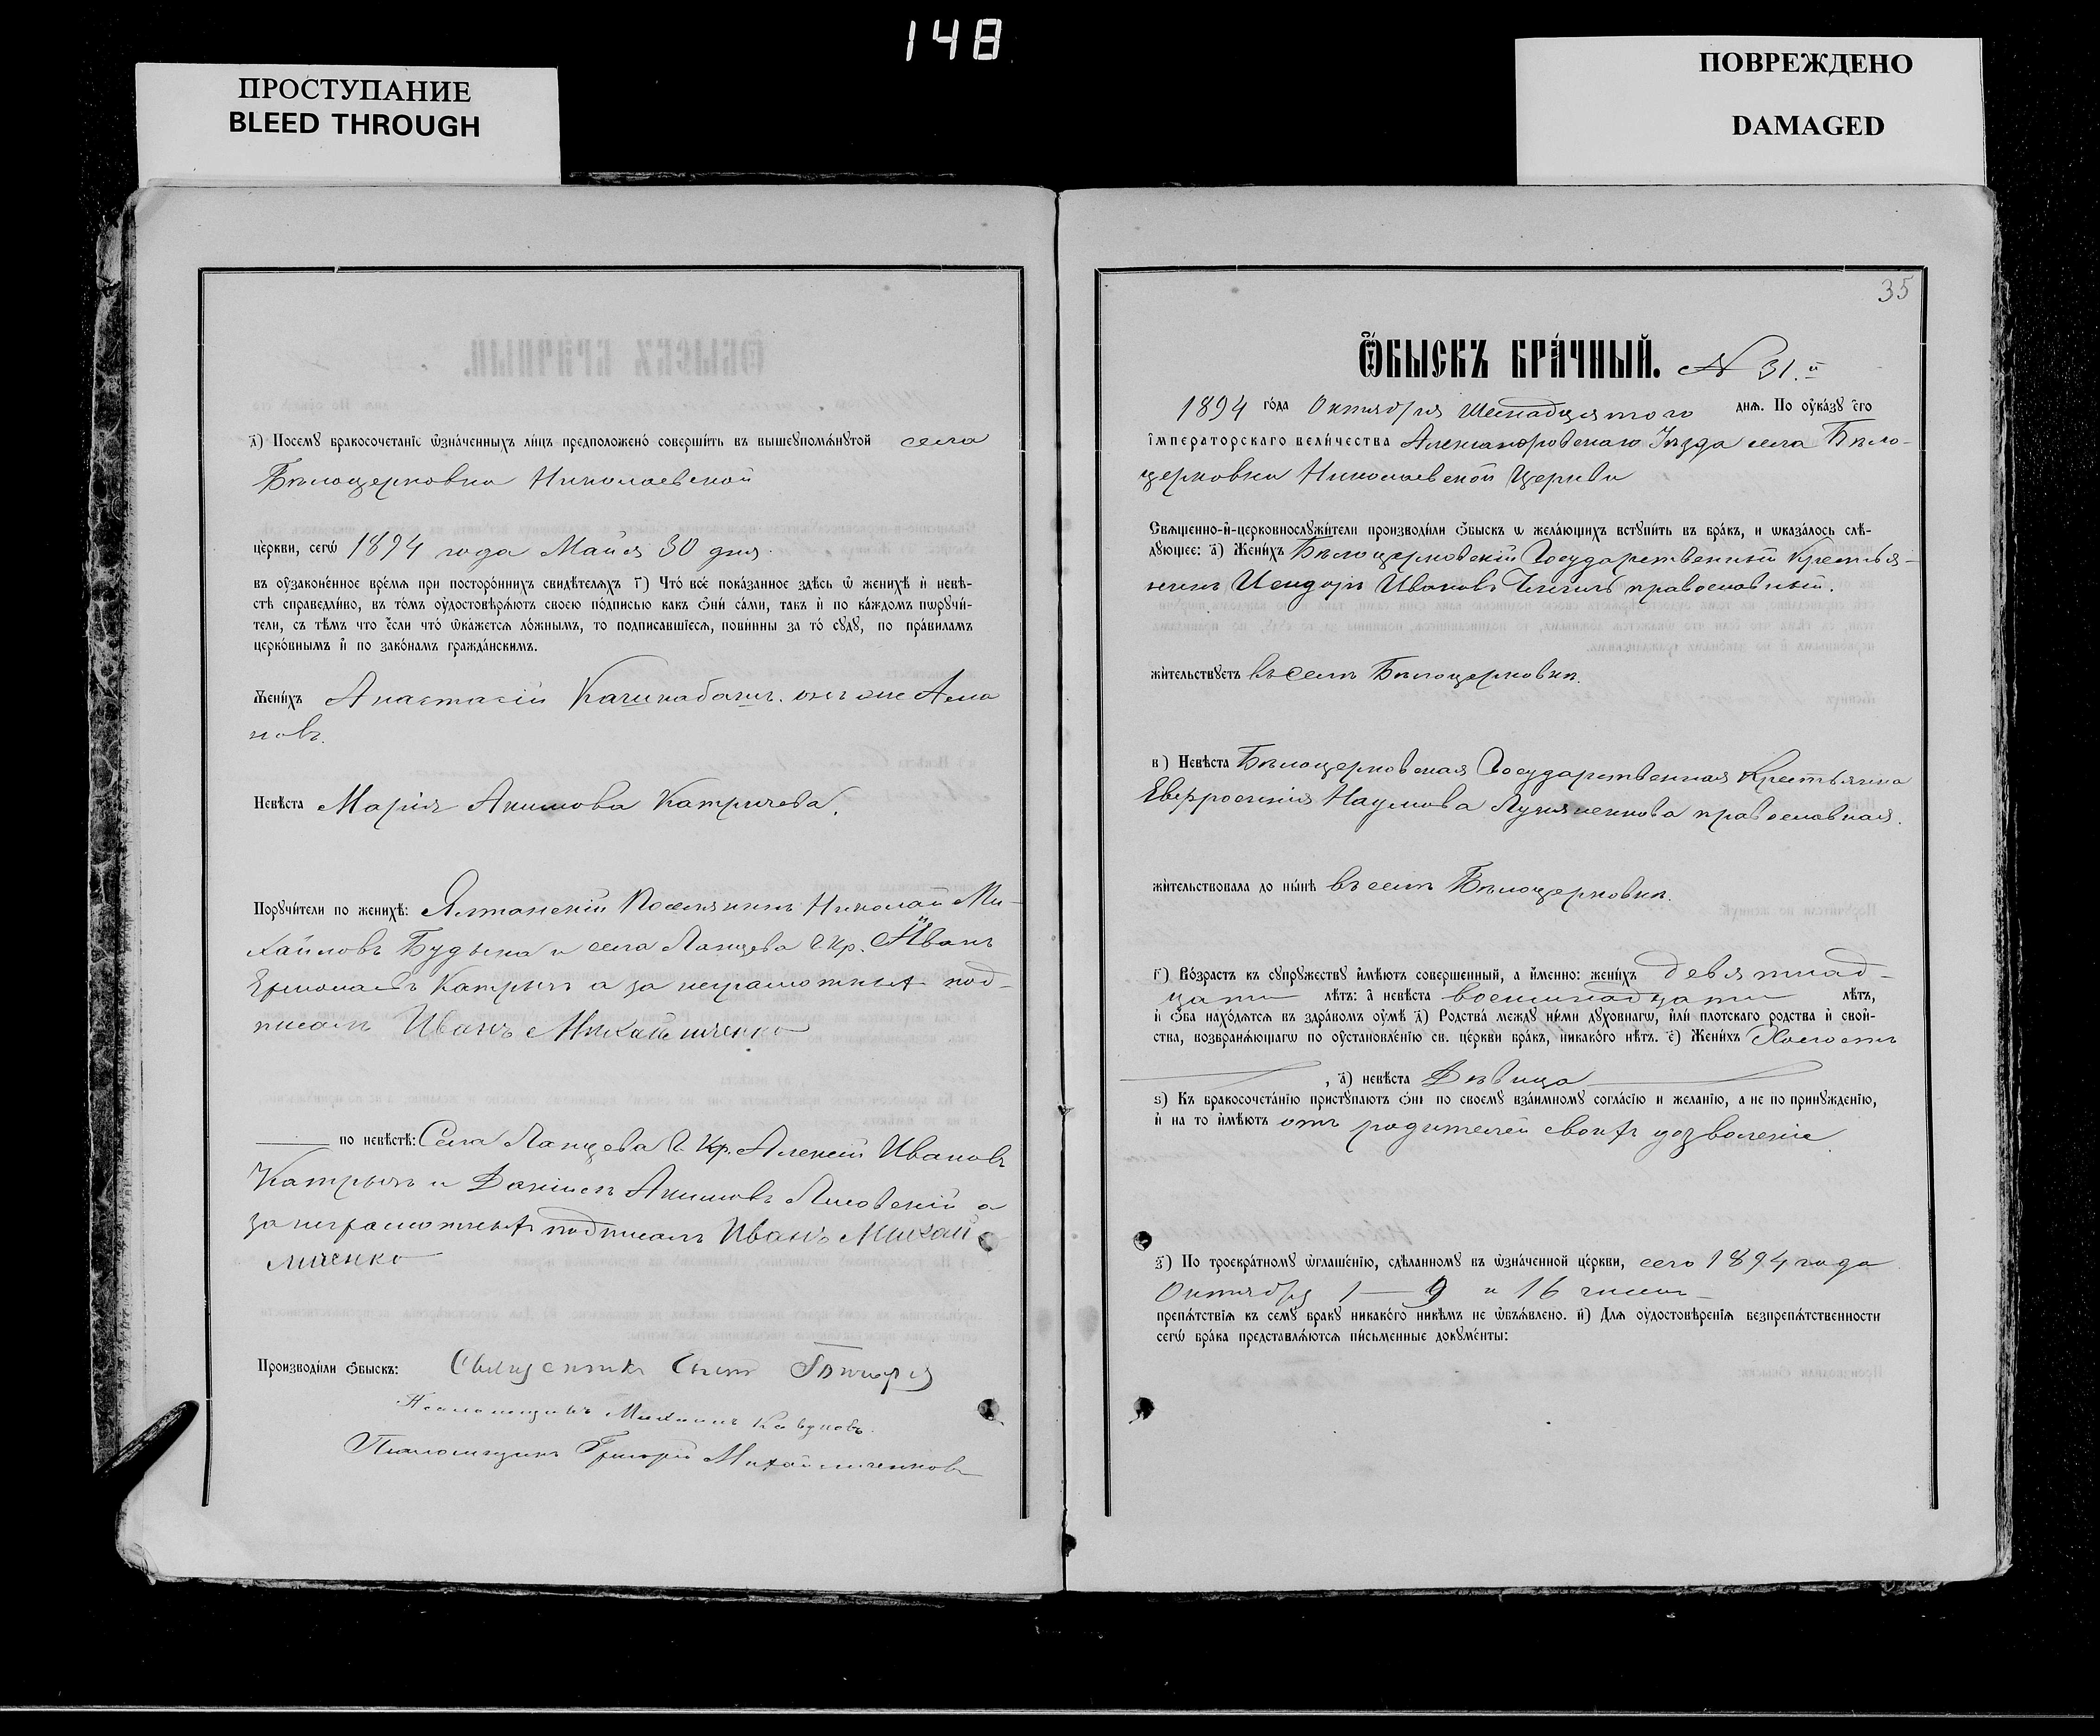 148
ПРОСТУПАНИЕ
BLEED THROUGH
ПОВРЕЖДЕНО
DAMAGED
д҃) Посемꙋ бракосочетанїе ѡзначенныхъ лицъ предположено совершить въ вышеꙋпомѧнꙋтой села
Бѣлоцерковки Николаевской
церкви, сегѡ 1894 года Майя 30 дня.
въ оузаконенное времѧ при постороннихъ свидѣтелѧхъ г҃) Что все показанное здѣсь ѡ женихѣ и невѣ-
стѣ справедливо, въ томъ оудостовѣрѧютъ своею подписью какъ ѻни сами, такъ и по каждомъ пѡрꙋчи-
тели, съ тѣмъ что если что ѡкажетсѧ ложнымъ, то подписавшїесѧ, повинны за то сꙋдꙋ, по правиламъ
церковнымъ и по законамъ гражданскимъ.
Женихъ Анастасій
Невѣста Марія Акимова Катричева.
Порꙋчители по женихѣ: Ялтанскій Поселянинъ Николай Ми-
хайловъ и села Ланцева Г. Кр. Иванъ
Катричъ а за неграмотныхъ под-
писалъ Иванъ Михайличенко
по невѣстѣ: Села Ланцева Г. Кр. Алексій Ивановъ
Катричъ и Даніилъ Акимовъ Лисовскій а
за неграмотныхъ подписалъ Иванъ Михай
личенко
Производили ѻбыскъ: Священникъ
Псаломщикъ Михаилъ
Псаломщикъ Григорій Михайличенковъ
35
Ѻбыскъ брачный. N 31.й
1894 года Октября Шестнадцятого днѧ. По оуказꙋ егѡ
императорскаго величества Александровскаго Уѣзда села Бѣло-
церковки Николаевской Церкви
Свѧщенно-и-церковнослꙋжители производили ѻбыскъ ѡ желающихъ встꙋпить въ бракъ, и ѡказалось слѣ-
дꙋющее: а҃) Женихъ Бѣлоцерковскій Государственный Крестья-
нинъ Исидоръ Ивановъ православный.
жительствꙋетъ въ селѣ Бѣлоцерковкѣ.
в҃) Невѣста Бѣлоцерковская Государственная Крестьянка
Евфросинія Наумова Лукяненкова православная.
жительствовала до нынѣ въ селѣ Бѣлоцерковкѣ.
г҃) Возрастъ къ сꙋпрꙋжествꙋ имѣютъ совершенный, а именно: женихъ девятнад-
цати лѣтъ: а невѣста восемнадцати лѣтъ,
и ѻба находѧтсѧ въ здравомъ оумѣ д҃) Родства междꙋ ними дꙋховнагѡ, или плотскаго родства и свой-
ства, возбранѧющагѡ по оустановленїю св. церкви бракъ, никакого нѣтъ. е҃) Женихъ Холостъ
, а) невѣста Дѣвица
ѕ҃) Къ бракосочетанїю пристꙋпаютъ ѻни по своемꙋ взаимномꙋ согласїю и желанїю, а не по принꙋжденїю,
и на то имѣютъ отъ родителей своихъ дозволеніе.
з҃) По троекратномꙋ ѡглашенїю, сдѣланномꙋ въ ѡзначенной церкви, сего 1894 года
Октября 1 — 9 и 16 чиселъ
препѧтствїѧ къ семꙋ бракꙋ никакого никѣмъ не ѡбъѧвлено. и҃) Длѧ оудостовѣренїѧ безпрепѧтственности
сегѡ брака представлѧютсѧ письменные докꙋменты: